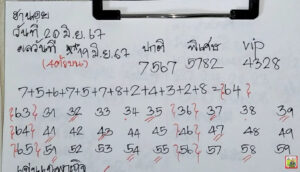 ฮานอย
วันที่ 20 มิ.ย. 67
ผลวันที่ 19 มิ.ย. 67 ปกติ พิเศษ vip
(4ตัวบน) 7567 5782 4328
7+5+6+7+5+7+8+2+4+3+2+8 = {64}
{63} 31 32 33 34 35 {36} 37 38 39
{64} 41 42 43 44 45 {46} 47 48 49
{65} 51 52 53 54 55 {56} 57 58 59